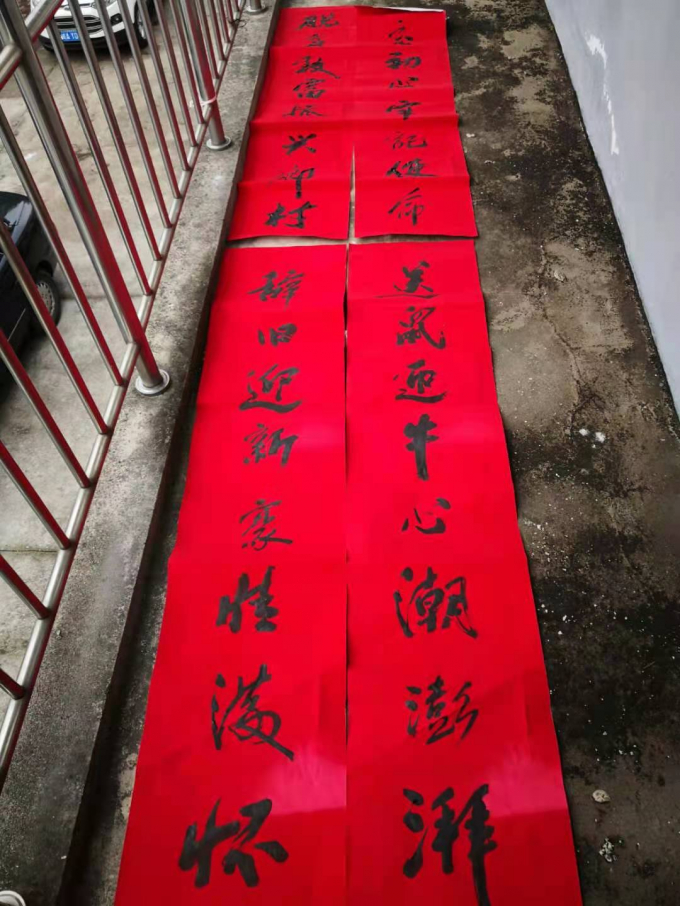 不忘初心牢记使命
脱贫致富振兴乡村
送鼠迎牛心潮澎湃
辞旧迎新豪情满怀